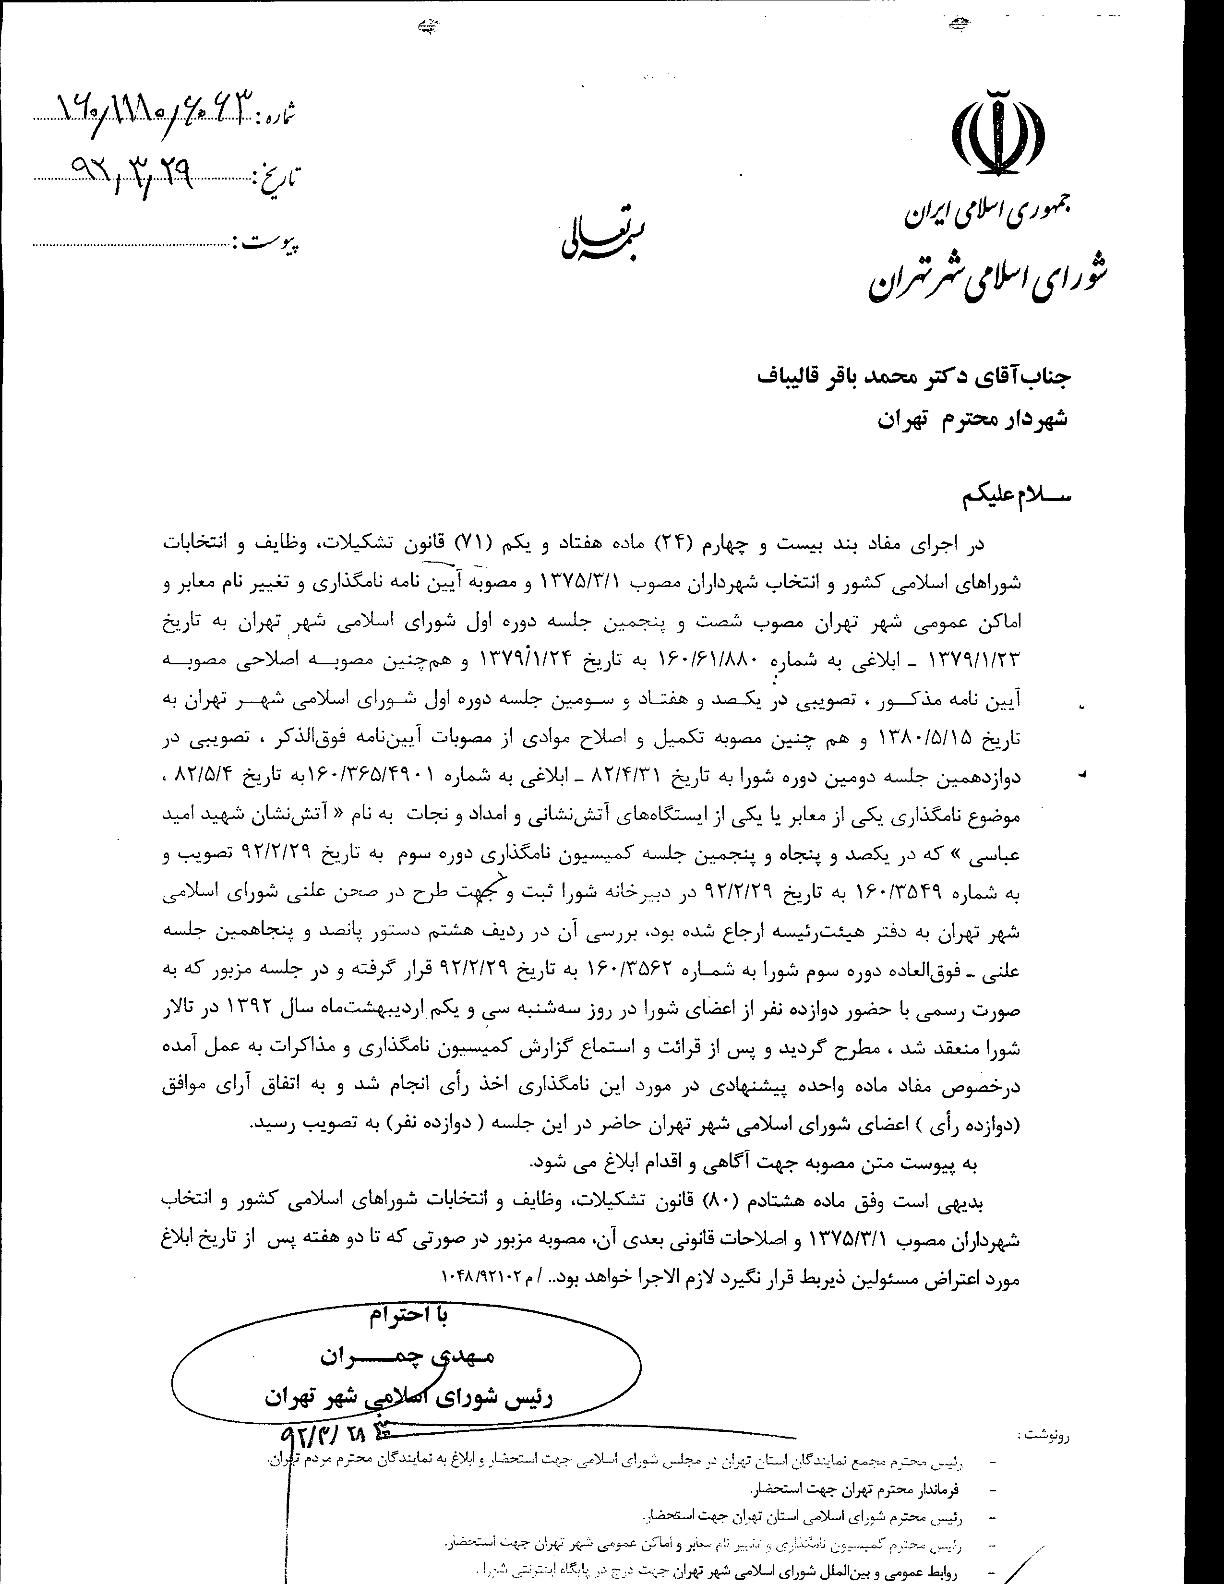 جمهوری اسلامی ایران
شورای اسلامی شهر تهران
بسمه تعالی
شماره: ۱۶۰/۱۱۸۰/۶۰۶۳
تاریخ: ۹۲/۳/۲۹
پیوست:
جناب‌آقای دکتر محمد باقر قالیباف
شهردار محترم تهران
سلام علیکم
در اجرای مفاد بند بیست و چهارم (۲۴) ماده هفتاد و یکم (۷۱) قانون تشکیلات، وظایف و انتخابات
شوراهای اسلامی کشور و انتخاب شهرداران مصوب ۱۳۷۵/۳/۱ و مصوبه آیین نامه نامگذاری و تغییر نام معابر و
اماکن عمومی شهر تهران مصوب شصت و پنجمین جلسه دوره اول شورای اسلامی شهر تهران به تاریخ
۱۳۷۹/۱/۲۳ ـ ابلاغی به شماره ۱۶۰/۶۱/۸۸۰ به تاریخ ۱۳۷۹/۱/۲۴ و هم‌چنین مصوبه اصلاحی مصوبه
آیین نامه مذکور ، تصویبی در یکصد و هفتاد و سومین جلسه دوره اول شورای اسلامی شهر تهران به
تاریخ ۱۳۸۰/۵/۱۵ و هم چنین مصوبه تکمیل و اصلاح موادی از مصوبات آیین‌نامه فوق‌الذکر ، تصویبی در
دوازدهمین جلسه دومین دوره شورا به تاریخ ۸۲/۴/۳۱ ـ ابلاغی به شماره ۱۶۰/۳۶۵/۴۹۰۱به تاریخ ۸۲/۵/۴ ،
موضوع نامگذاری یکی از معابر یا یکی از ایستگاه‌های آتش‌نشانی و امداد و نجات به نام « آتش‌نشان شهید امید
عباسی » که در یکصد و پنجاه و پنجمین جلسه کمیسیون نامگذاری دوره سوم به تاریخ ۹۲/۲/۲۹ تصویب و
به شماره ۱۶۰/۳۵۴۹ به تاریخ ۹۲/۲/۲۹ در دبیرخانه شورا ثبت و جهت طرح در صحن علنی شورای اسلامی
شهر تهران به دفتر هیئت‌رئیسه ارجاع شده بود، بررسی آن در ردیف هشتم دستور پانصد و پنجاهمین جلسه
علنی ـ فوق‌العاده دوره سوم شورا به شماره ۱۶۰/۳۵۶۲ به تاریخ ۹۲/۲/۲۹ قرار گرفته و در جلسه مزبور که به
صورت رسمی با حضور دوازده نفر از اعضای شورا در روز سه‌شنبه سی و یکم اردیبهشت‌ماه سال ۱۳۹۲ در تالار
شورا منعقد شد ، مطرح گردید و پس از قرائت و استماع گزارش کمیسیون نامگذاری و مذاکرات به عمل آمده
درخصوص مفاد ماده واحده پیشنهادی در مورد این نامگذاری اخذ رأی انجام شد و به اتفاق آرای موافق
(دوازده رأی ) اعضای شورای اسلامی شهر تهران حاضر در این جلسه ( دوازده نفر) به تصویب رسید.
به پیوست متن مصوبه جهت آگاهی و اقدام ابلاغ می شود.
بدیهی است وفق ماده هشتادم (۸۰) قانون تشکیلات، وظایف و انتخابات شوراهای اسلامی کشور و انتخاب
شهرداران مصوب ۱۳۷۵/۳/۱ و اصلاحات قانونی بعدی آن، مصوبه مزبور در صورتی که تا دو هفته پس از تاریخ ابلاغ
مورد اعتراض مسئولین ذیربط قرار نگیرد لازم الاجرا خواهد بود.. / م ۱۰۴۸/۹۲۱۰۲
با احترام
مهدی چمران
رئیس شورای اسلامی شهر تهران
۹۲/۳/۲۸
رونوشت :
- رئیس محترم مجمع نمایندگان استان تهران در مجلس شورای اسلامی جهت استحضار و ابلاغ به نمایندگان محترم مردم تهران.
- فرماندار محترم تهران جهت استحضار.
- رئیس محترم شورای اسلامی استان تهران جهت استحضار.
- رئیس محترم کمیسیون نامگذاری و تغییر نام معابر و اماکن عمومی شهر تهران جهت استحضار.
- روابط عمومی و بین‌الملل شورای اسلامی شهر تهران جهت درج در پایگاه اینترنتی شورا.